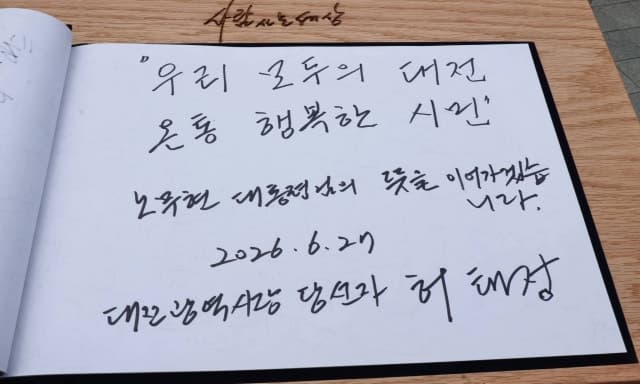 사람사는세상
"우리 모두의 대전
온통 행복한 시민"
노무현 대통령님의 뜻을 이어가겠습
니다.
2026.6.27
대전광역시장 당선자 허태정